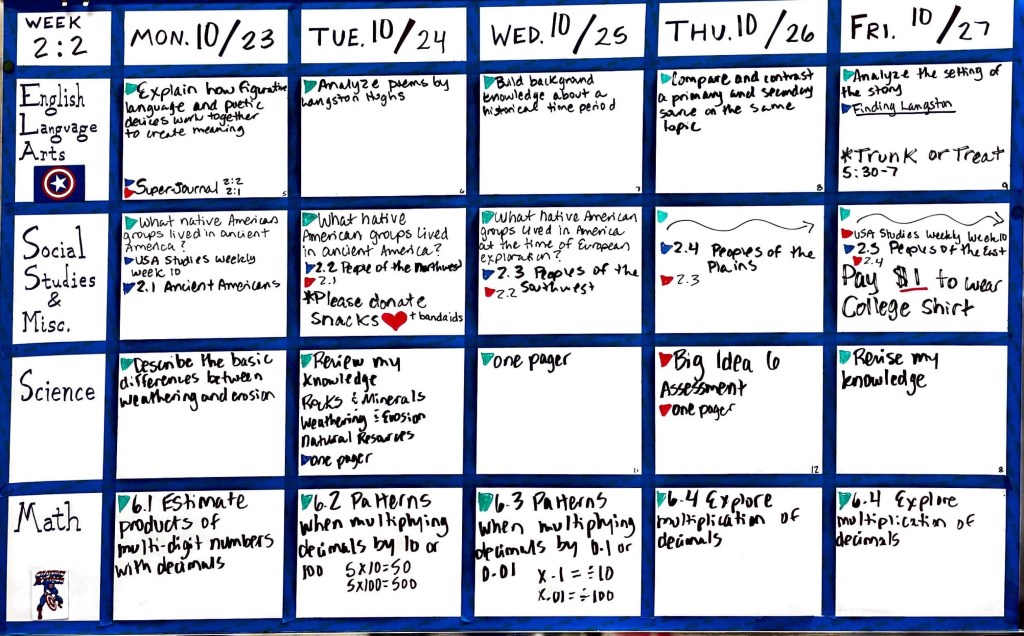 WEEK
2:2
MON. 10/23
TUE. 10/24
WED. 10/25
THU. 10/26
FRI. 10/27
English
Language
Arts
Explain how figurative
language and poetic
devices work together
to create meaning
Super-Journal 2:2
2:1
5
Analyze poems by
Langston Hughs
6
Build background
knowledge about a
historical time period
7
Compare and contrast
a primary and secondary
source on the same
topic
8
Analyze the setting of
the story
Finding Langston
*Trunk or Treat
5:30-7
9
Social
Studies
&
Misc.
What native American
groups lived in ancient
America?
USA Studies Weekly
Week 10
2.1 Ancient Americans
What native
American groups lived
in ancient America?
2.2 People of the Northwest
2.1
*Please donate
snacks + bandaids
What native American
groups lived in America
at the time of European
exploration?
2.3 Peoples of the
Southwest
2.2
2.4 Peoples of the
Plains
2.3
USA Studies Weekly Week 10
2.5 Peoples of the East
2.4
Pay $1 to wear
College Shirt
Science
Describe the basic
differences between
weathering and erosion
Review my
knowledge
Rocks & Minerals
Weathering & Erosion
Natural Resources
one pager
one pager
11
Big Idea 6
Assessment
one pager
12
Revise my
knowledge
8
Math
6.1 Estimate
products of
multi-digit numbers
with decimals
6.2 Patterns
when multiplying
decimals by 10 or
100 5x10=50
5x100=500
6.3 Patterns
when multiplying
decimals by 0.1 or
0.01 x.1 = ÷10
x.01 = ÷100
6.4 Explore
multiplication of
decimals
6.4 Explore
multiplication of
decimals